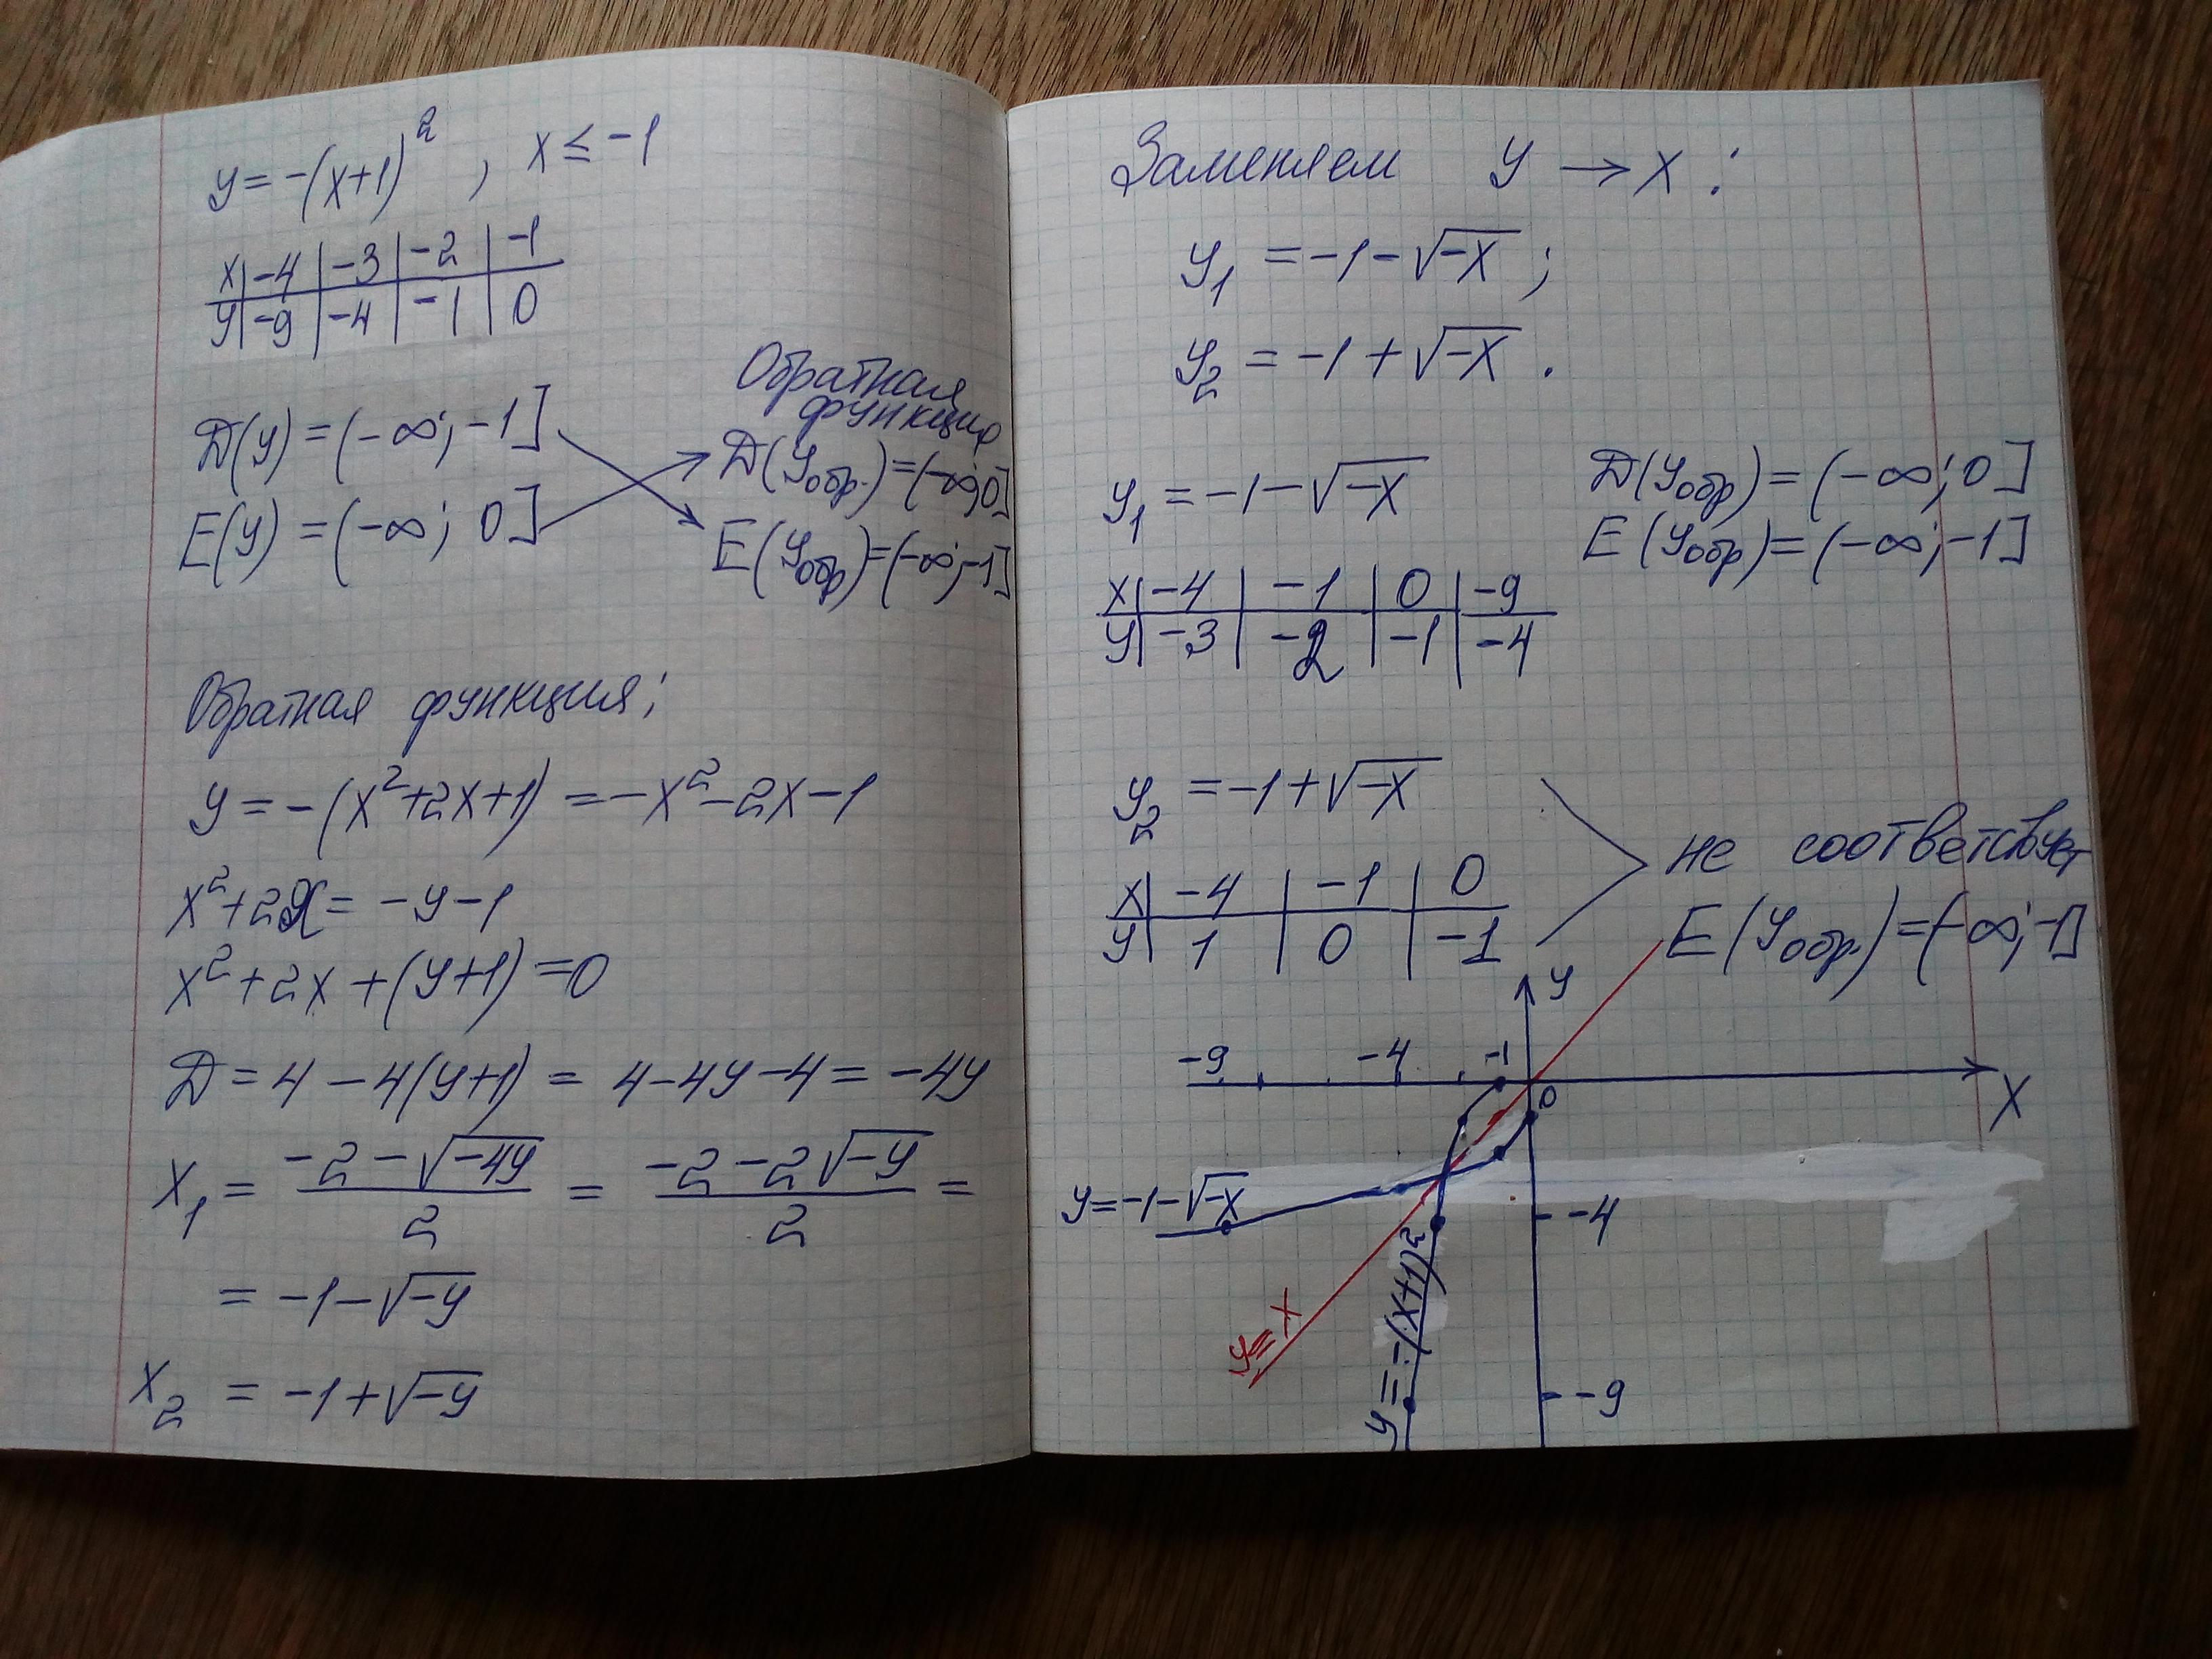 y = -(x+1)², x ≤ -1
x | -4 | -3 | -2 | -1
y | -9 | -4 | -1 | 0
Обратная
функция
D(y) = (-∞; -1]
D(yобр.) = (-∞; 0]
E(y) = (-∞; 0]
E(yобр) = (-∞; -1]
Обратная функция:
y = -(x²+2x+1) = -x²-2x-1
x²+2x = -y-1
x²+2x+(y+1) = 0
D = 4 - 4(y+1) = 4-4y-4 = -4y
x₁ = (-2-√(-4y))/2 = (-2-2√(-y))/2 =
= -1-√(-y)
x₂ = -1+√(-y)
Заменяем y → x :
y₁ = -1-√(-x) ;
y₂ = -1+√(-x) .
y₁ = -1-√(-x)
D(yобр) = (-∞; 0]
E(yобр) = (-∞; -1]
x | -4 | -1 | 0 | -9
y | -3 | -2 | -1 | -4
y₂ = -1+√(-x)
x | -4 | -1 | 0
y | 1 | 0 | -1
не соответствует
E(yобр.) = (-∞; -1]
y
-9 -4 -1
0
x
y = -1-√(-x)
-4
y = x
y = -(x+1)²
-9